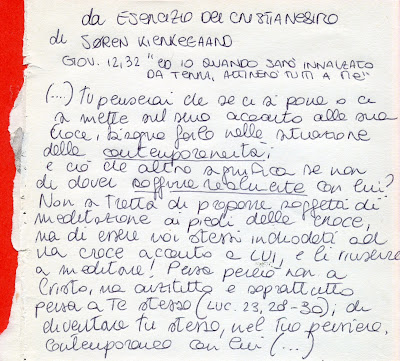 da ESERCIZIO DEL CRISTIANESIMO
di SØREN KIERKEGAARD
GIOV. 12,32 "ED IO QUANDO SARÒ INNALZATO
DA TERRA, ATTIRERÒ TUTTI A ME"
(...) Tu penserai che se ci si pone o ci
si mette sul suo accanto alla sua
croce, bisogna farlo nella situazione
della contemporaneità;
e ciò che altro significa se non
di dover soffrire realmente con lui?
Non si tratta di proporre soggetti di
meditazione ai piedi della croce,
ma di essere voi stessi inchiodati ad
una croce accanto a LUI, e lì riuscire
a meditare! Pensa perciò non a
Cristo, ma anzitutto e soprattutto
pensa a Te stesso (LUC. 23, 28-30); di
diventare tu stesso, nel tuo pensiero,
contemporaneo con lui (...)